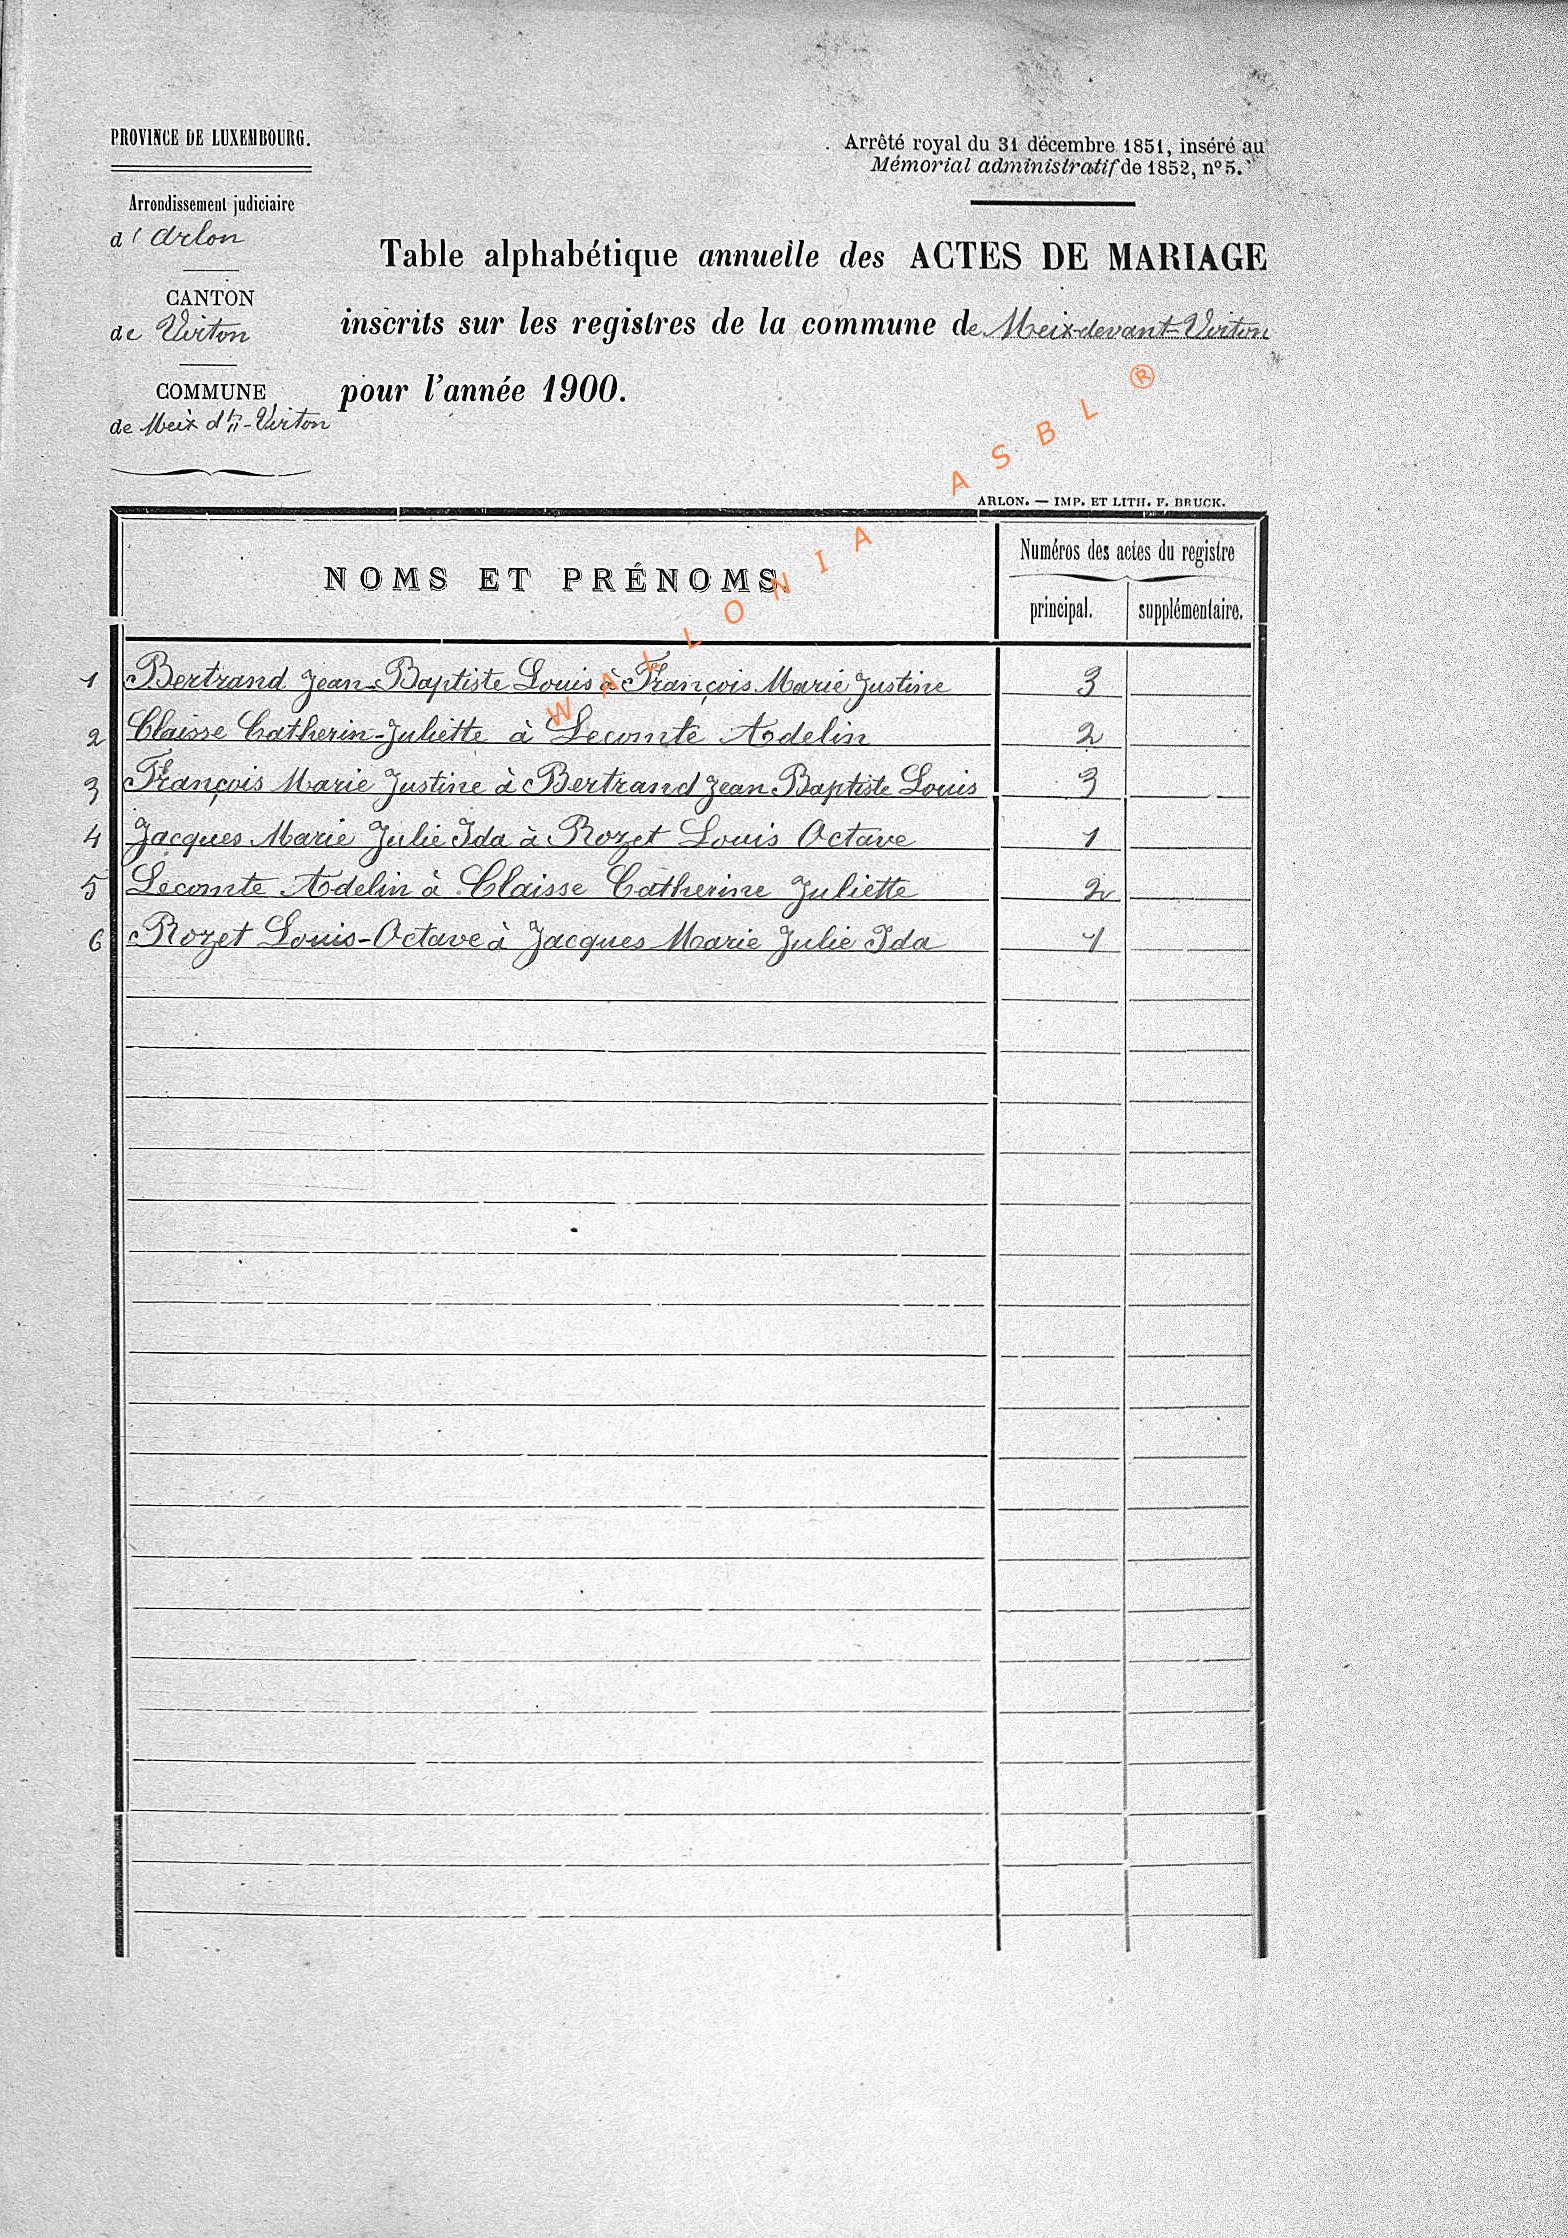 PROVINCE DE LUXEMBOURG.
Arrondissement judiciaire
d'Arlon
CANTON
de Virton
COMMUNE
de Meix dt-Virton
Arrêté royal du 31 décembre 1851, inséré au
Mémorial administratif de 1852, nº 5.
Table alphabétique annuelle des ACTES DE MARIAGE
inscrits sur les registres de la commune de Meix-devant-Virton
pour l'année 1900.
WALLONIA ASBL ®
ARLON. — IMP. ET LITH. F. BRUCK.
NOMS ET PRÉNOMS.
Numéros des actes du registre
principal. supplémentaire.
1 Bertrand Jean-Baptiste Louis à François Marie Justine 3
2 Claisse Catherin-Juliette à Lecomte Adelin 2
3 François Marie Justine à Bertrand Jean Baptiste Louis 3
4 Jacques Marie Julie Ida à Rozet Louis Octave 1
5 Lecomte Adelin à Claisse Catherine Juliette 2
6 Rozet Louis-Octave à Jacques Marie Julie Ida 1